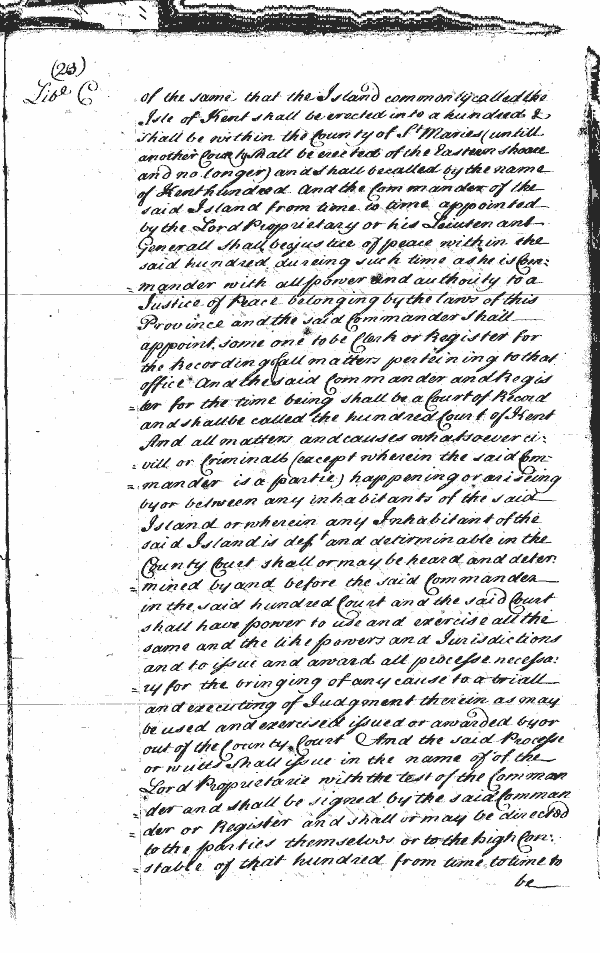 (23)
Libr C
of the same that the Island commonly called the
Isle of Kent shall be erected into a hundred &
shall be within the County of St Maries (untill
another County shall be erected of the Eastern shoare
and no longer) and shall be called by the name
of Kent hundred And the Commander of the
said Island from time to time appointed
by the Lord Proprietary or his Lieutenant
Generall shall be justice of peace within the
said hundred dureing such time as he is Com:
mander with all power and authority to a
Justice of Peace belonging by the laws of this
Province and the said Commander shall
appoint some one to be Clerk or Register for
the Recording of all matters pertening to that
office And the said Commander and Regis
ter for the time being shall be a Court of Record
and shall be called the hundred Court of Kent
And all matters and causes whatsoever ci:
vill or Criminall (except wherein the said Com:
mander is a partie) happening or ariseing
by or between any inhabitants of the said
Island or wherein any Inhabitant of the
said Island is deft and determinable in the
County Court shall or may be heard and deter:
mined by and before the said Commander
in the said hundred Court and the said Court
shall have power to use and exercise all the
same and the like powers and Jurisdictions
and to issue and award all processe necessa:
ry for the bringing of any cause to a triall
and executing of Judgment therein as may
be used and exercised issued or awarded by or
out of the County Court And the said Processe
or writts shall issue in the name of of the
Lord Proprietarie with the test of the Comman
der and shall be signed by the said Comman
der or Register and shall or may be directed
to the parties themselves or to the high Con:
stable of that hundred from time to time to
be